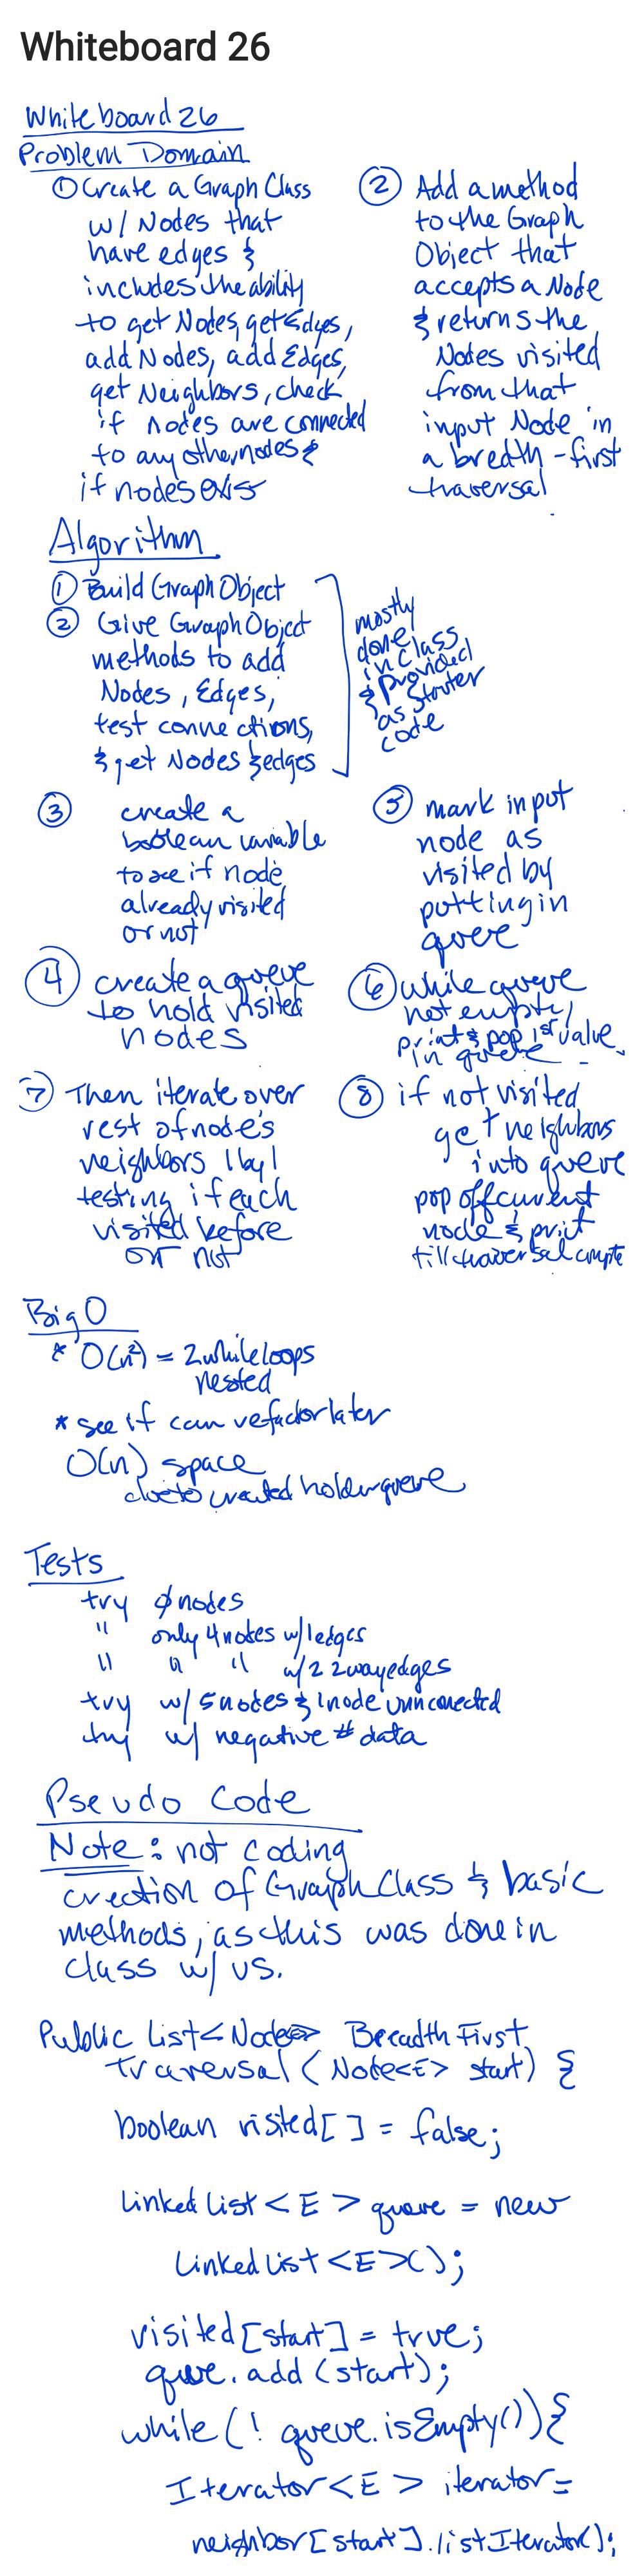 Whiteboard 26
Whiteboard 26
Problem Domain
① Create a Graph Class
w/ Nodes that
have edges &
includes the ability
to get Nodes, get Edges,
add Nodes, add Edges,
get Neighbors, check
if nodes are connected
to any other nodes &
if nodes exis
② Add a method
to the Graph
Object that
accepts a Node
& returns the
Nodes visited
from that
input Node in
a bredth-first
traversal
Algorithm
① Build Graph Object
② Give Graph Object
methods to add
Nodes, Edges,
test connections,
& get Nodes & edges
mostly
done
in class
& provided
as starter
code
③ create a
boolean variable
to see if node
already visited
or not
④ create a queue
to hold visited
nodes
⑤ mark input
node as
visited by
putting in
queue
⑥ while queue
not empty,
print & pop 1st value
in queue
⑦ Then iterate over
rest of node's
neighbors 1 by 1
testing if each
visited before
or not
⑧ if not visited
get neighbors
into queue
pop off current
node & print
till traversal complte
Big O
* O(n²) = 2 while loops
nested
* see if can refactor later
O(n) space
due to created holder queue
Tests
try ∅ nodes
" only 4 nodes w/ 1 edges
" " " w/ 2 2 way edges
try w/ 5 nodes & 1 node unnconected
try w/ negative # data
Pseudo Code
Note: not coding
creation of Graph Class & basic
methods, as this was done in
class w/ us.
Public List<Node<E>> BreadthFirst
traversal (Node<E> start) {
boolean visited[] = false;
Linked List <E> queue = new
Linked List <E>();
visited[start] = true;
queue.add(start);
while (! queue.isEmpty()) {
Iterator<E> iterator =
neighbor[start].listIterator();